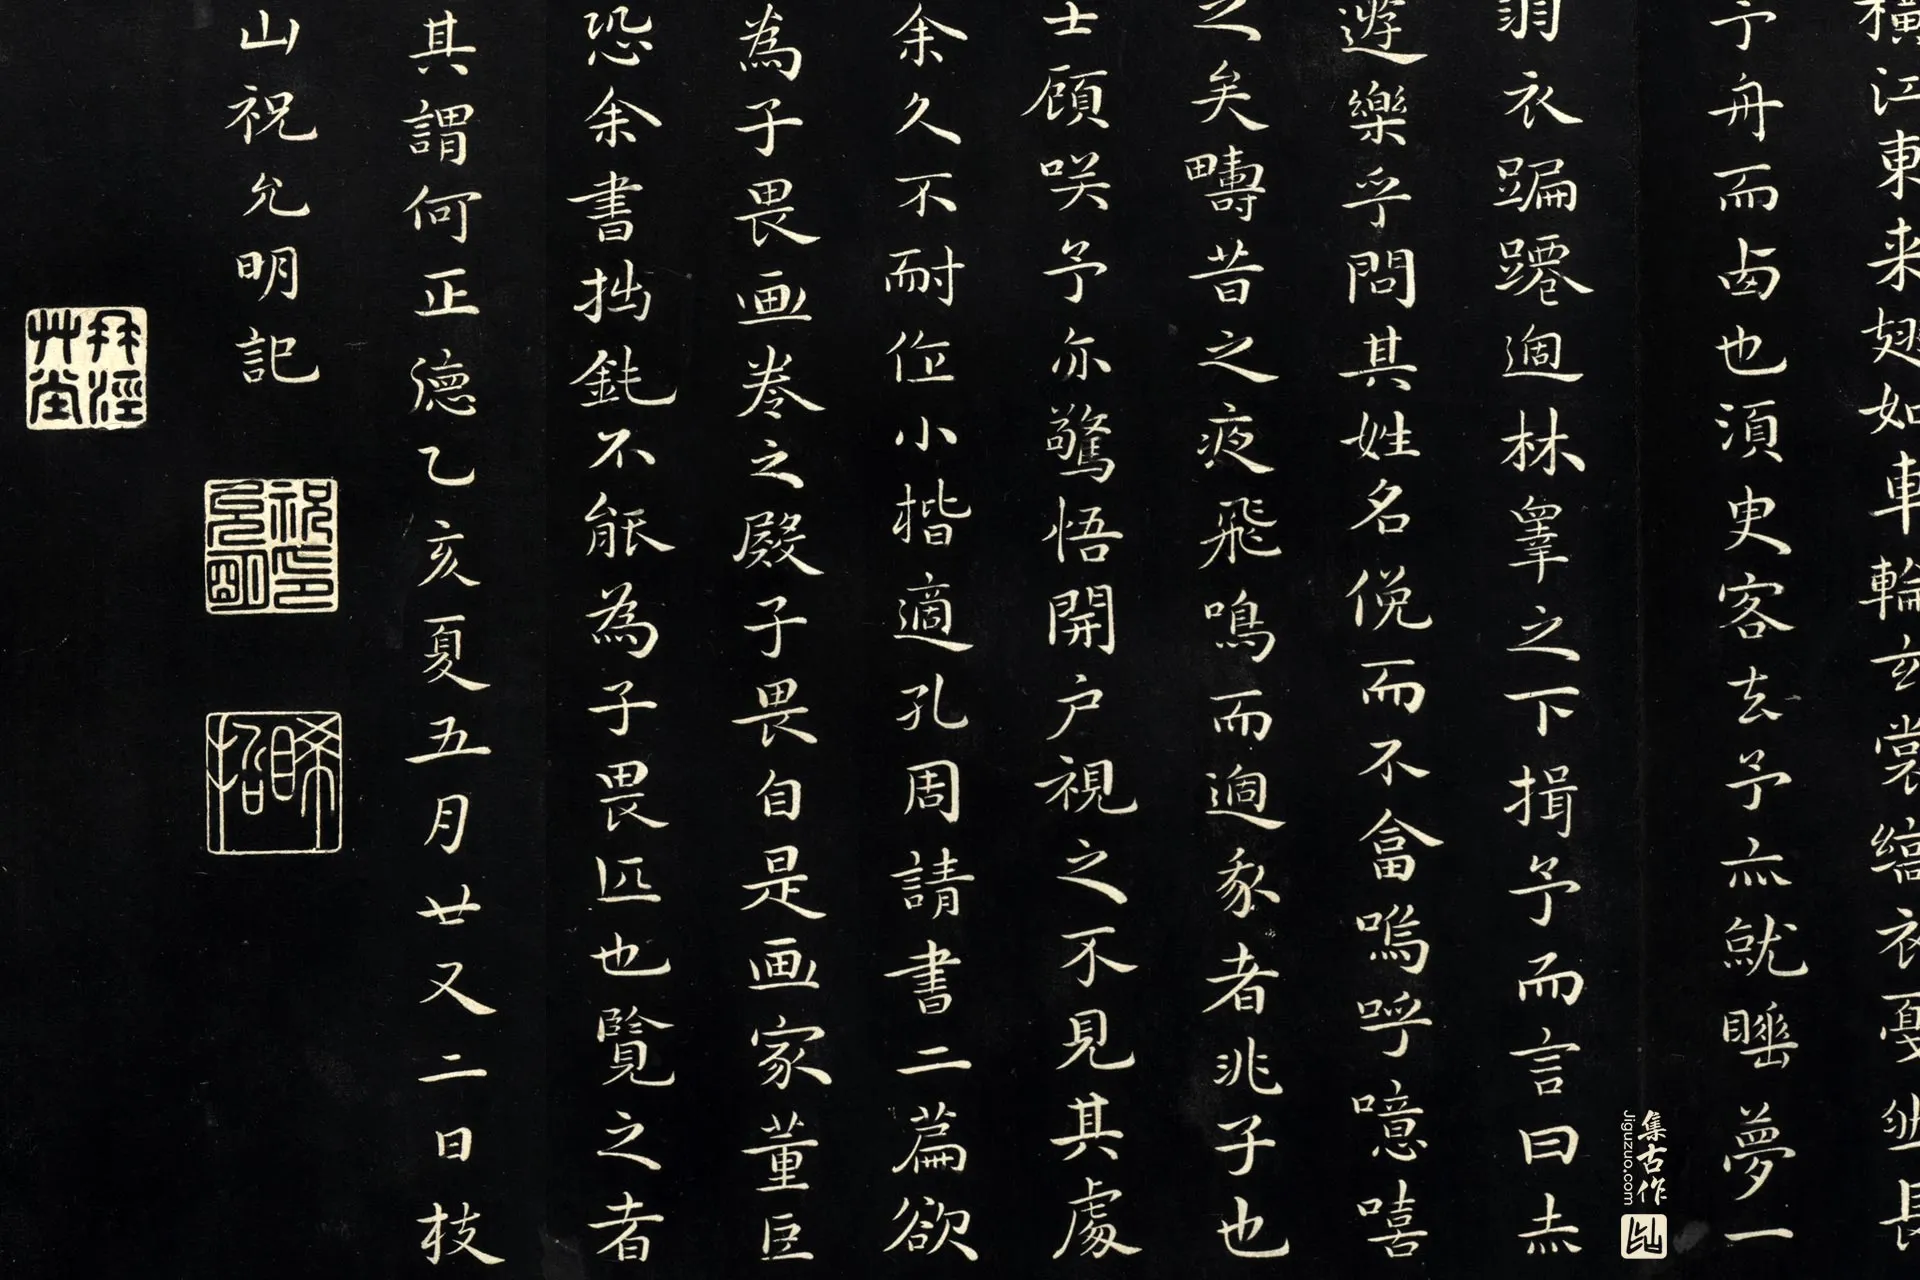 橫江東来翅如車輪玄裳縞衣戞然長
予舟而西也湏臾客去予亦就睡夢一
羽衣蹁躚過林皋之下揖予而言曰赤
遊樂乎問其姓名俛而不畣嗚呼噫嘻
之矣疇昔之夜飛鳴而過我者非子也
士顧咲予亦驚悟開户視之不見其處
余久不耐作小楷適孔周請書二篇欲
為子畏画卷之殿子畏自是画家董巨
恐余書拙鈍不能為子畏匹也覽之者
其謂何正德乙亥夏五月廿又二日枝
山祝允明記
祝允明印
晞哲
集古作
Jiguzuo.com